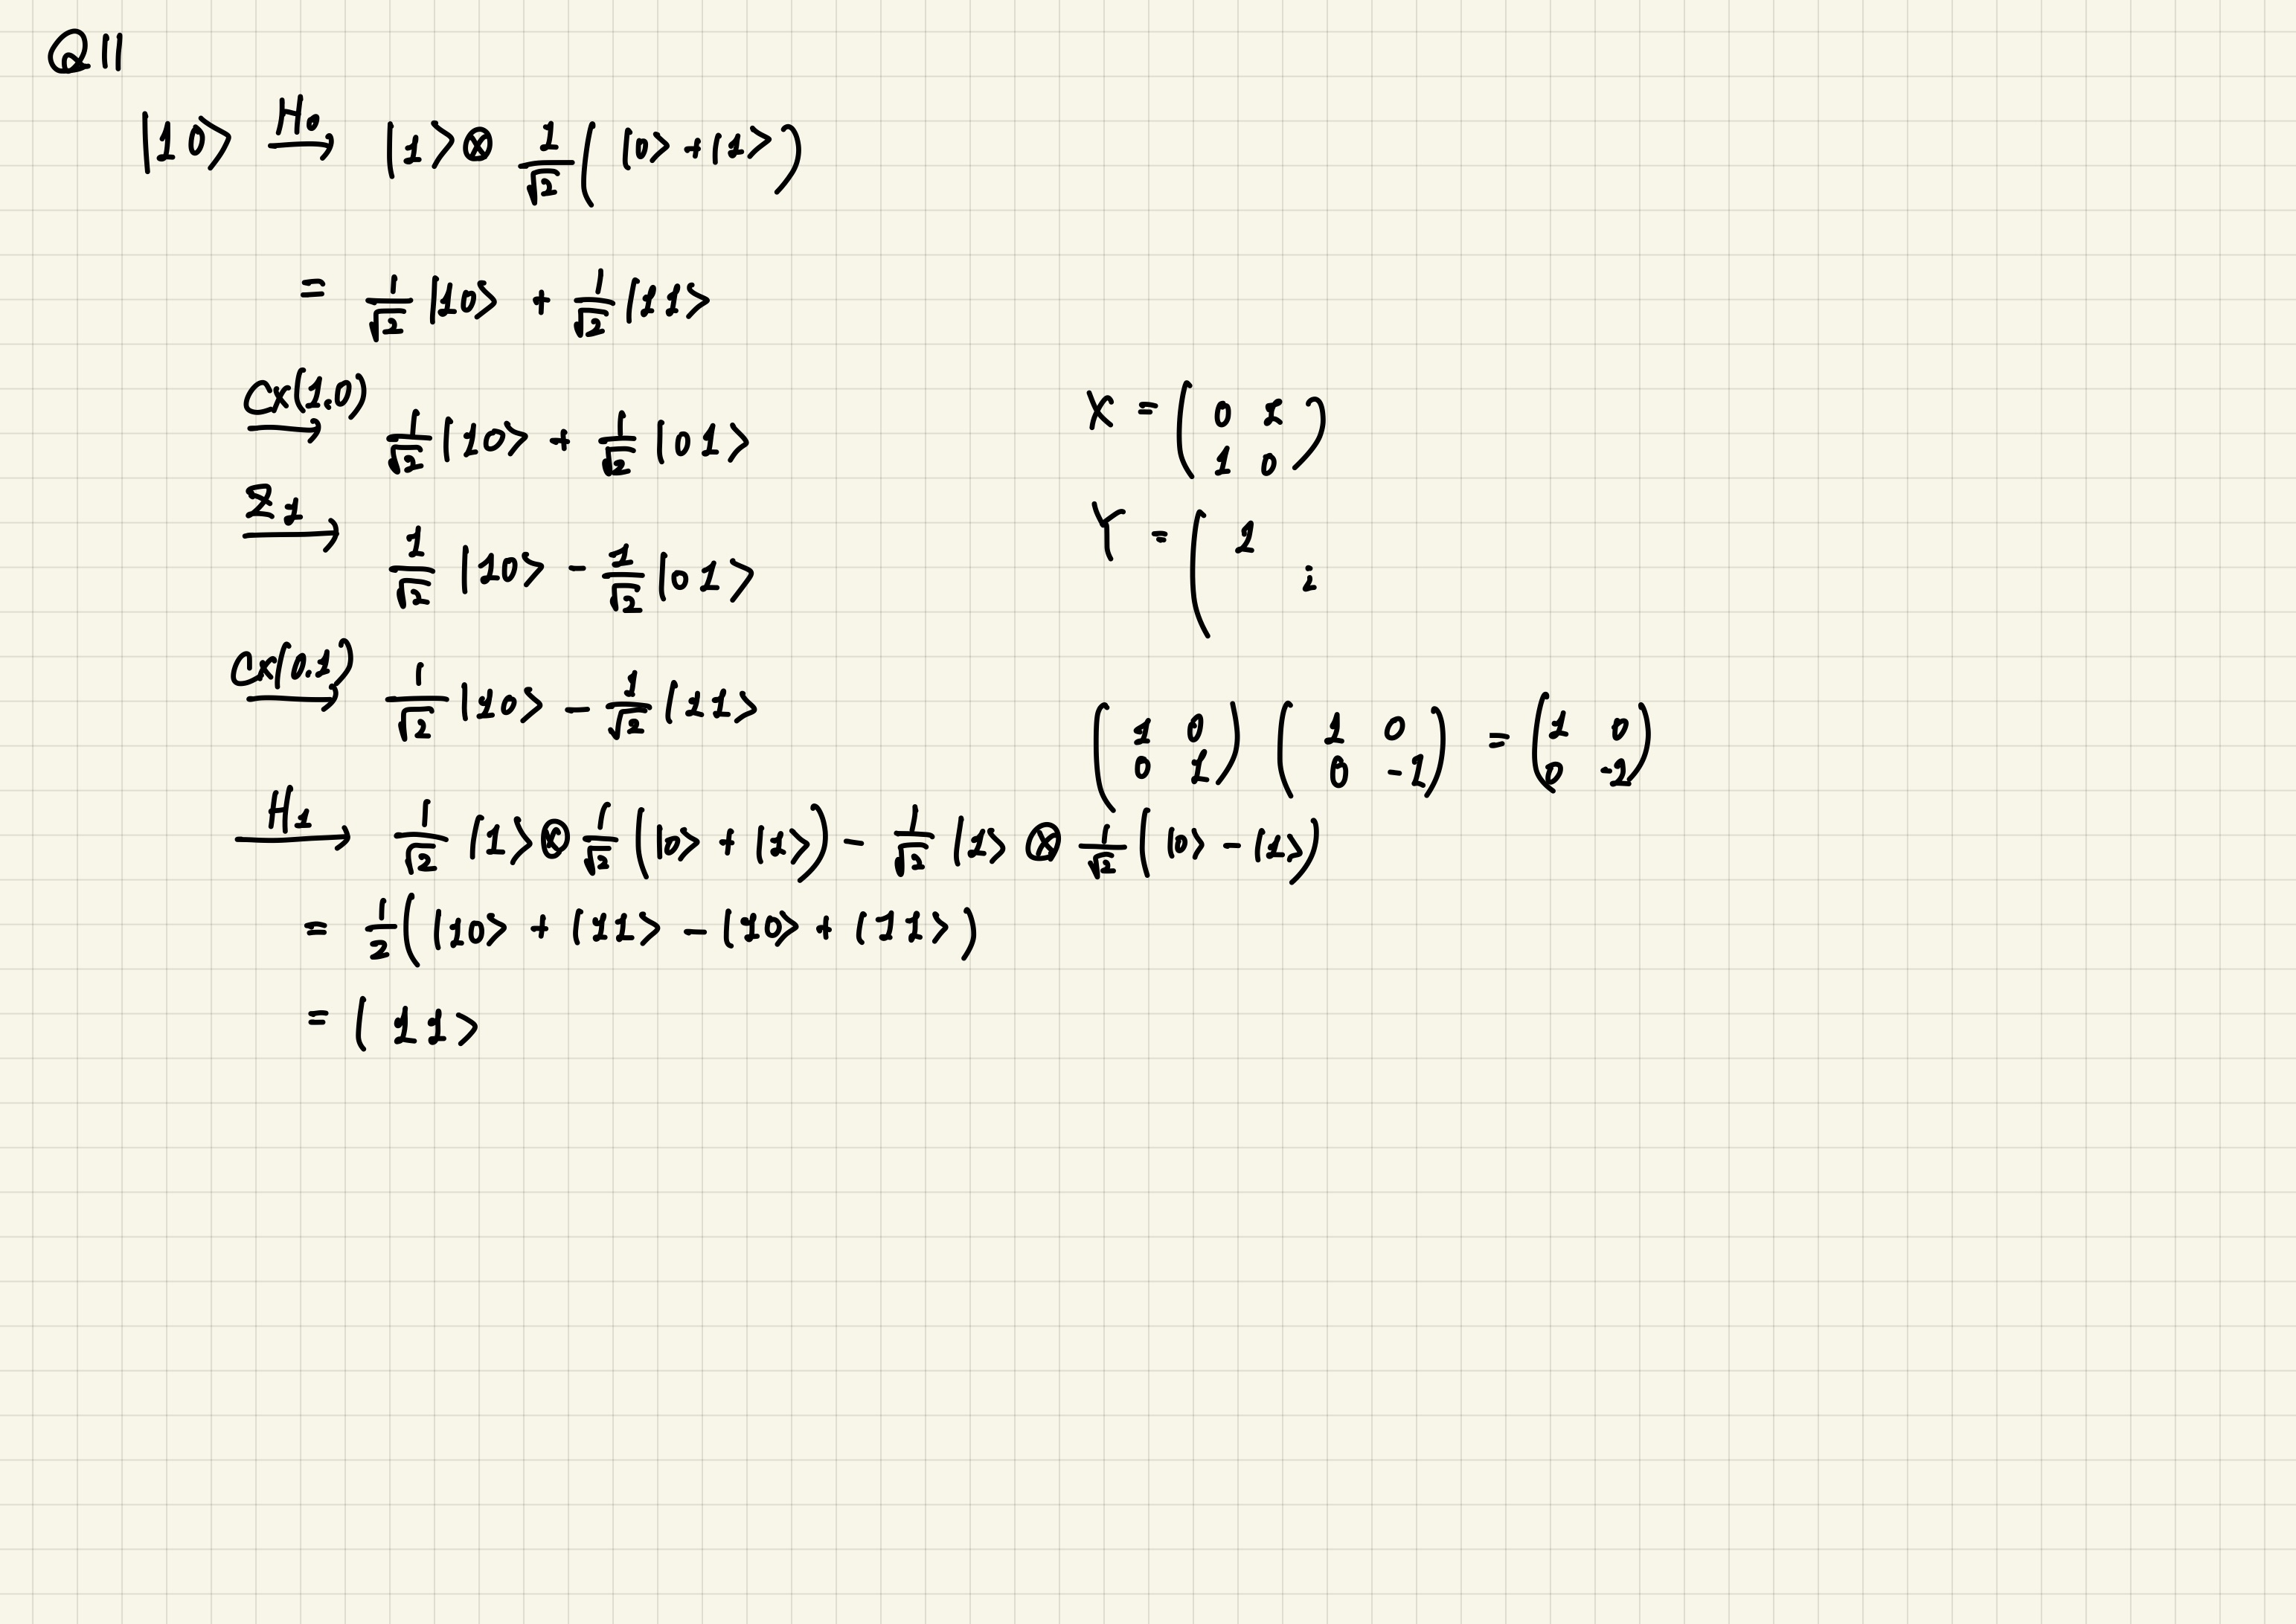 Q11
|10⟩ —H₀→ |1⟩⊗ 1/√2 ( |0⟩+|1⟩ )
= 1/√2 |10⟩ + 1/√2 |11⟩
—Cx(1.0)→ 1/√2 |10⟩ + 1/√2 |01⟩
—Z₁→ 1/√2 |10⟩ − 1/√2 |01⟩
—Cx(0.1)→ 1/√2 |10⟩ − 1/√2 |11⟩
—H₁→ 1/√2 |1⟩⊗ 1/√2 ( |0⟩ + |1⟩ ) − 1/√2 |1⟩ ⊗ 1/√2 ( |0⟩ − |1⟩ )
= 1/2 ( |10⟩ + |11⟩ − |10⟩ + |11⟩ )
= |11⟩
X = ( 0 1
1 0 )
Y = ( 1
i
( 1 0 ) ( 1 0 ) = ( 1 0 )
( 0 1 ) ( 0 -1 ) ( 0 -1 )